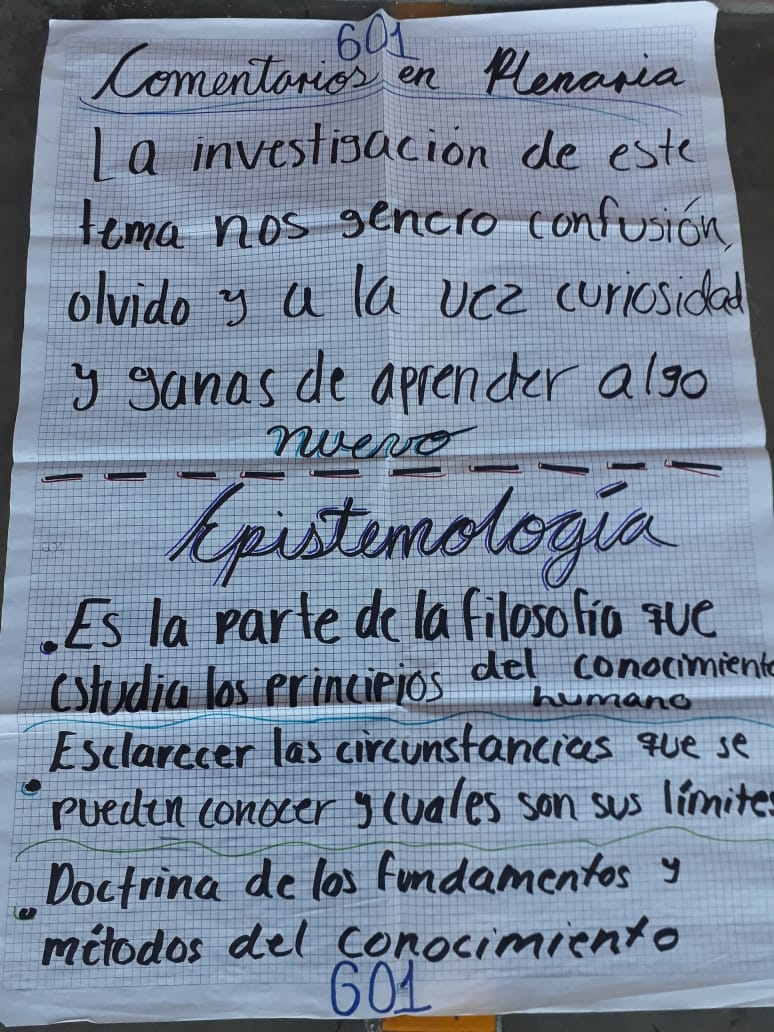 601
Comentarios en Plenaria
La investigación de este
tema nos genero confusión,
olvido y a la vez curiosidad
y ganas de aprender algo
nuevo
Epistemología
. Es la parte de la filosofía que
estudia los principios del conocimiento
humano
Esclarecer las circunstancias que se
. pueden conocer y cuales son sus límites
. Doctrina de los fundamentos y
métodos del conocimiento
601